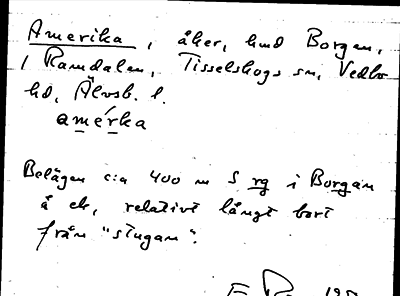 Amerika, åker, hmd Borgen,
i Ramdalen, Tisselskogs sn, Vedbo
hd, Älvsb. l.
amérka
Belägen c:a 400 m S rg i Borgan
å ek, relativt långt bort
från "stugan".